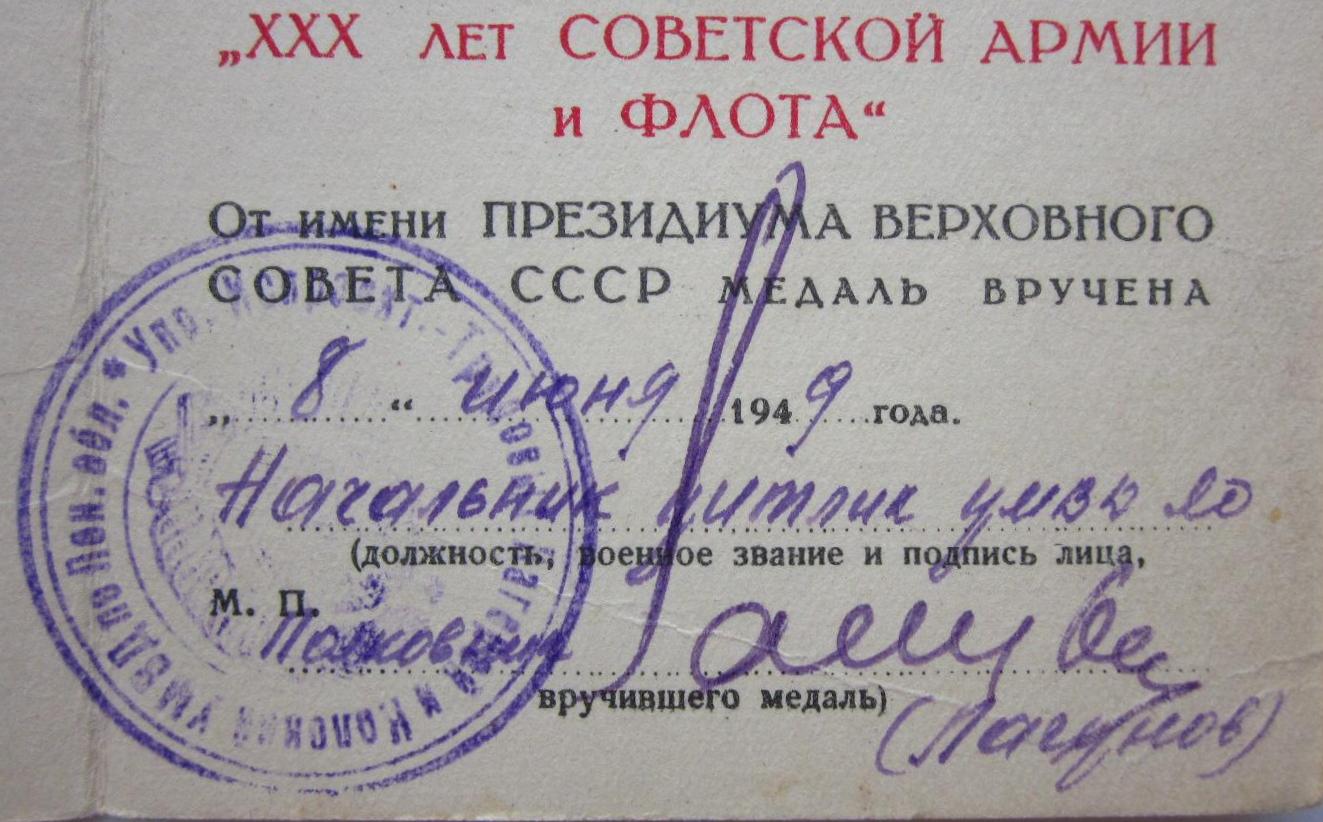 „XXX ЛЕТ СОВЕТСКОЙ АРМИИ
и ФЛОТА“
От имени ПРЕЗИДИУМА ВЕРХОВНОГО
СОВЕТА СССР МЕДАЛЬ ВРУЧЕНА
„ 8 “ июня 1949 года.
Начальник уитлик умвд ло
(должность, военное звание и подпись лица,
М. П.
Полковник
вручившего медаль)
(Лагунов)
Упр. Исправит.-Трудовы Лагерей и Колоний УМВД по Лен. обл.